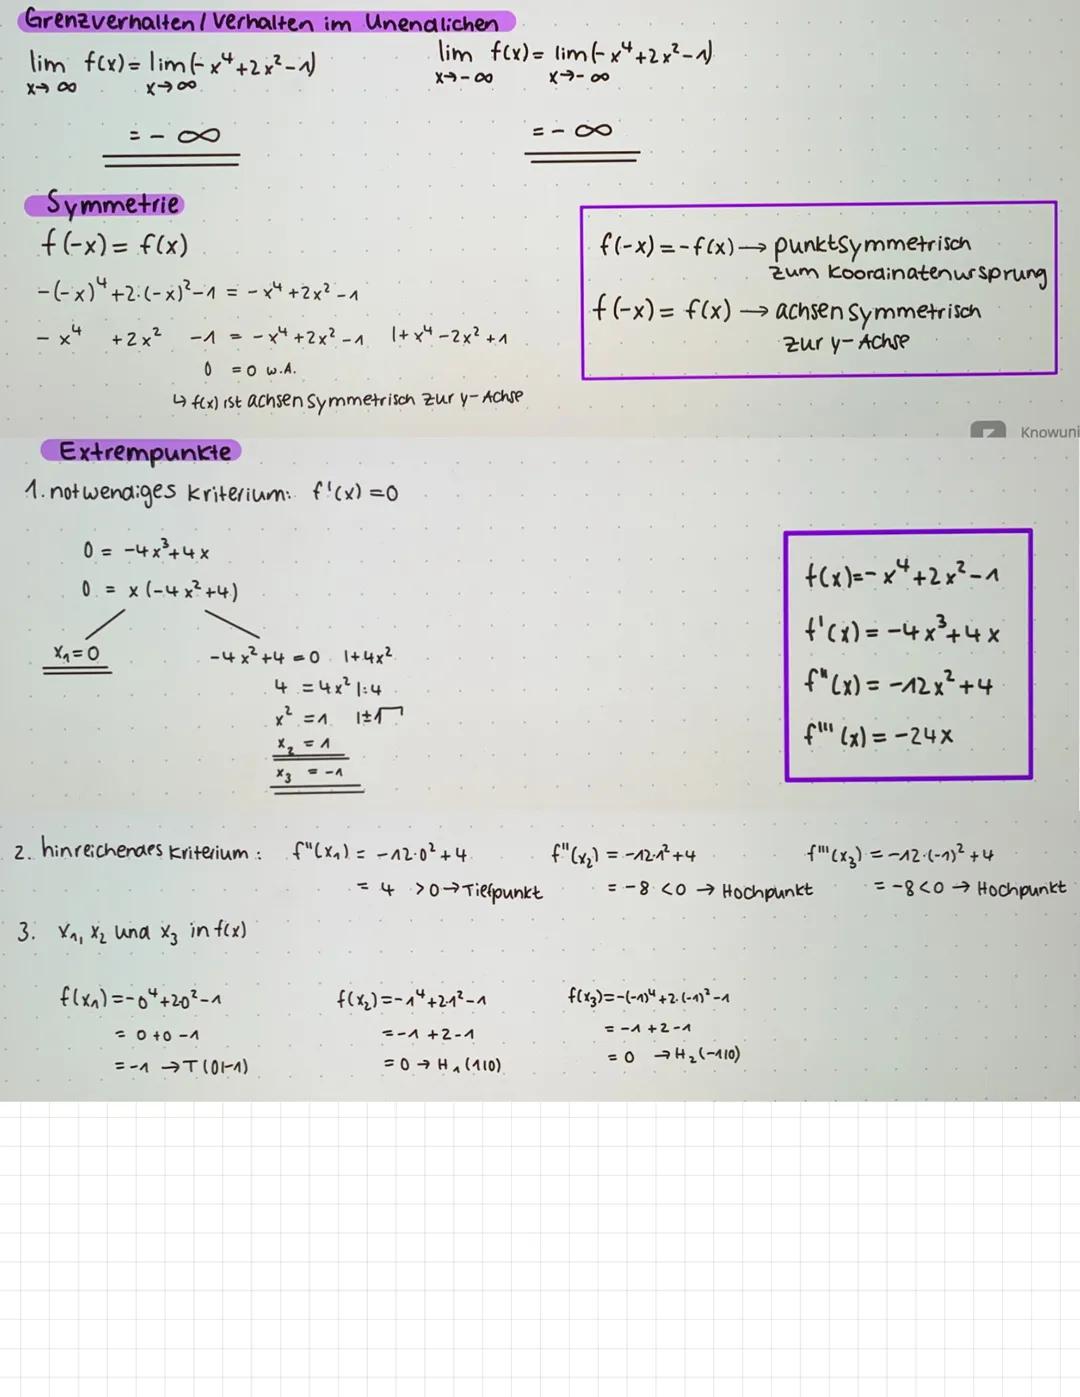 Grenzverhalten / Verhalten im Unendlichen
lim f(x) = lim (-x⁴+2x²-1)
x→∞ x→∞
= -∞
lim f(x) = lim (-x⁴+2x²-1)
x→-∞ x→-∞
= -∞
Symmetrie
f(-x) = f(x)
-(-x)⁴+2·(-x)²-1 = -x⁴+2x²-1
-x⁴ +2x² -1 = -x⁴+2x²-1 |+x⁴-2x²+1
0 = 0 w.A.
↳ f(x) ist achsensymmetrisch zur y-Achse
f(-x) = -f(x) → punktsymmetrisch
zum Koordinatenursprung
f(-x) = f(x) → achsensymmetrisch
zur y-Achse
Knowuni
Extrempunkte
1. notwendiges Kriterium: f'(x) = 0
0 = -4x³+4x
0 = x(-4x²+4)
x₁=0
-4x²+4 = 0 |+4x²
4 = 4x² |:4
x² = 1 |±√
x₂ = 1
x₃ = -1
f(x) = -x⁴+2x²-1
f'(x) = -4x³+4x
f''(x) = -12x²+4
f'''(x) = -24x
2. hinreichendes Kriterium: f''(x₁) = -12·0²+4 f''(x₂) = -12·1²+4 f'''(x₃) = -12·(-1)²+4
= 4 >0 → Tiefpunkt = -8 <0 → Hochpunkt = -8<0 → Hochpunkt
3. x₁, x₂ und x₃ in f(x)
f(x₁) = -0⁴+2·0²-1 f(x₂) = -1⁴+2·1²-1 f(x₃) = -(-1)⁴+2·(-1)²-1
= 0+0-1 = -1+2-1 = -1+2-1
= -1 → T(0|-1) = 0 → H₁(1|0) = 0 → H₂(-1|0)